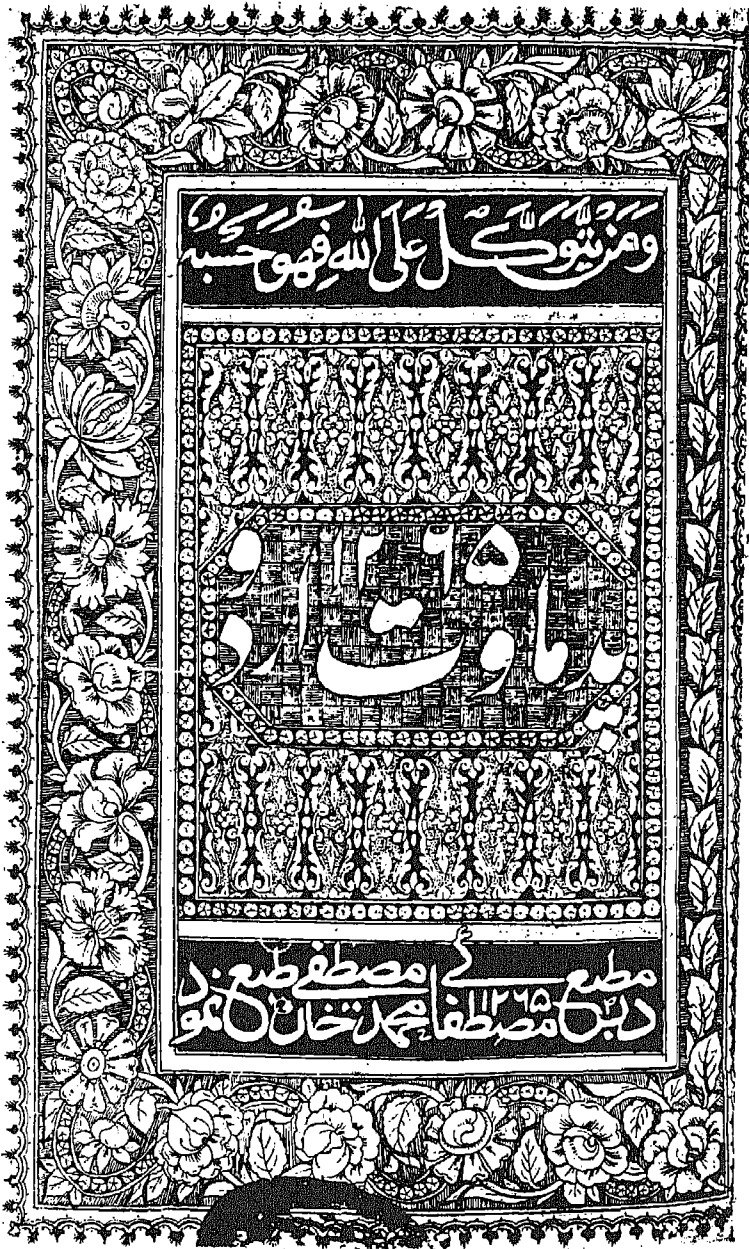 ومن يتوكل على الله فهو حسبه
۱۲۶۵
پدماوت اردو
مطبع مصطفے
محمد مصطفا خان طبع نمود
۱۲۶۵